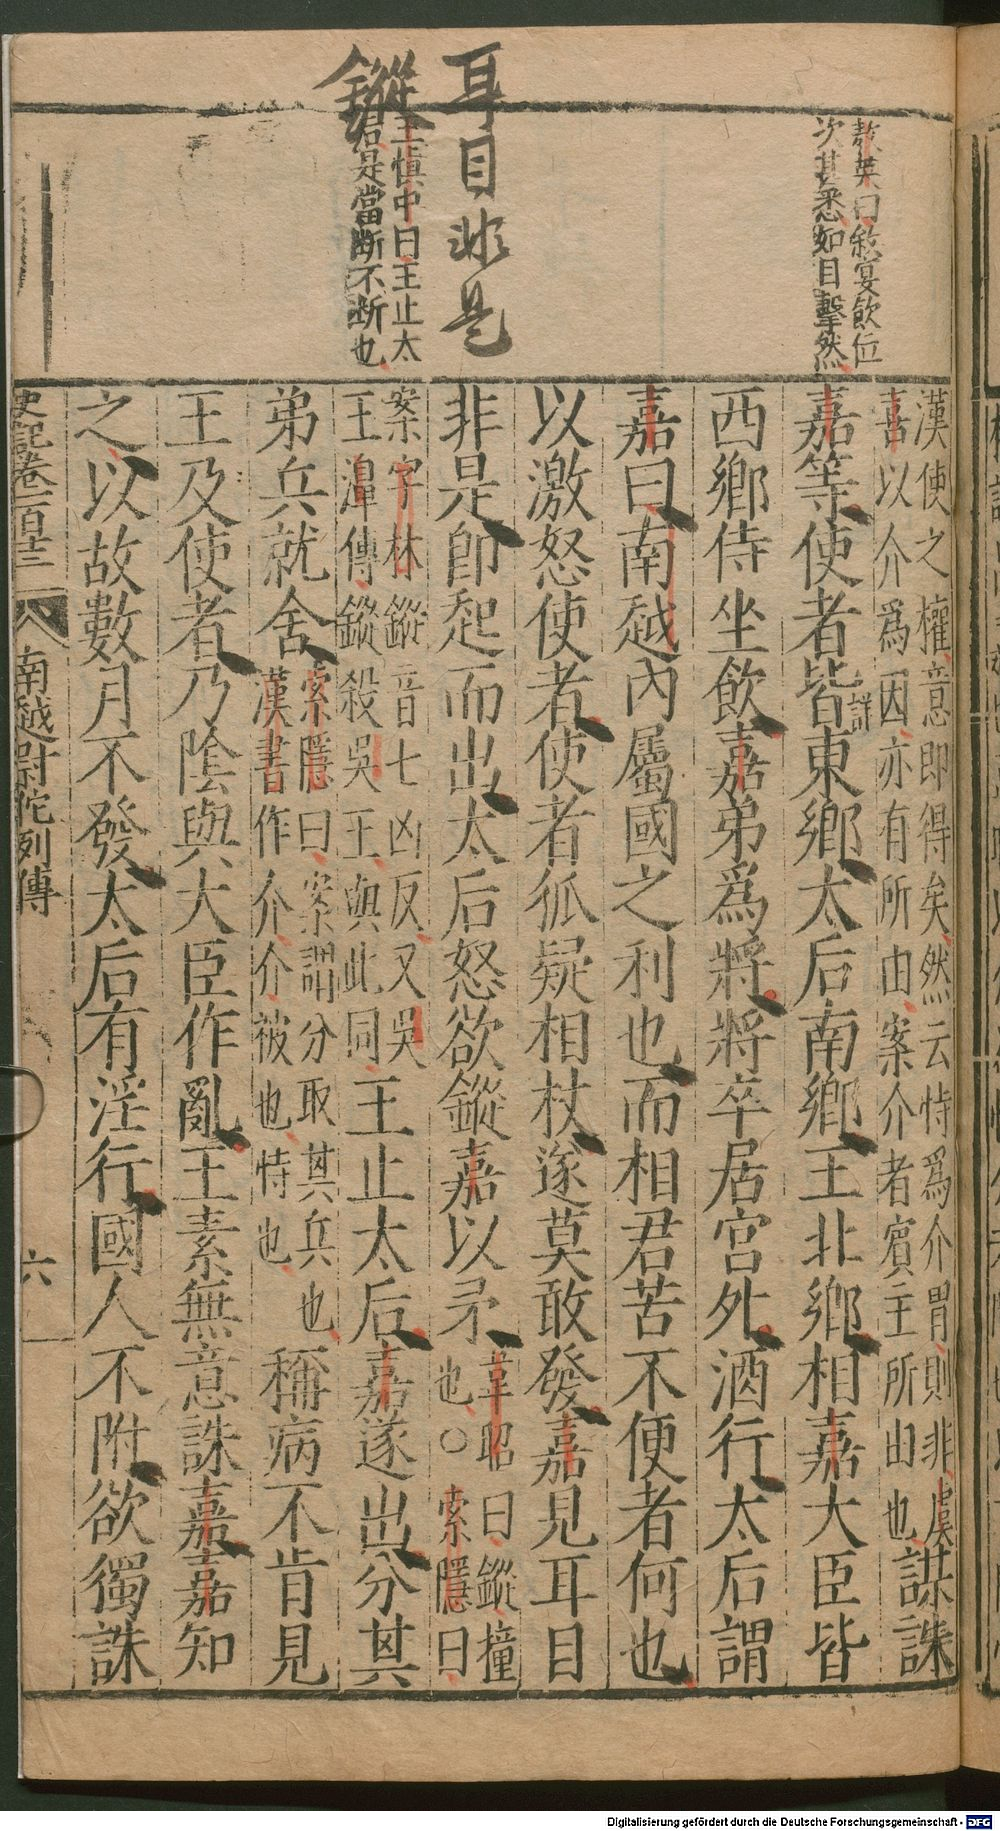 敖英曰敘宴飲位
次甚悉如目擊然
耳目非是
鏦
王慎中曰王止太
后是當斷不斷也
漢使之權意即得矣然云恃爲介冑則非虞
喜以介爲因亦有所由案介者賓主所由也
謀誅
嘉等使者皆東鄉太后南鄉王北鄉相嘉大臣皆
詳
西鄉侍坐飲嘉弟爲將將卒居宮外酒行太后謂
嘉曰南越內屬國之利也而相君苦不便者何也
以激怒使者使者狐疑相杖遂莫敢發嘉見耳目
非是卽起而出太后怒欲鏦嘉以矛
韋昭曰鏦撞
也○索隱曰
案字林鏦音七凶反又吳
王濞傳鏦殺吳王與此同
王止太后嘉遂出分其
弟兵就舍
索隱曰案謂分取其兵也
漢書作介介被也恃也
稱病不肯見
王及使者乃陰與大臣作亂王素無意誅嘉嘉知
之以故數月不發太后有淫行國人不附欲獨誅
史記卷一百十三
南越尉佗列傳
六
Digitalisierung gefördert durch die Deutsche Forschungsgemeinschaft - DFG